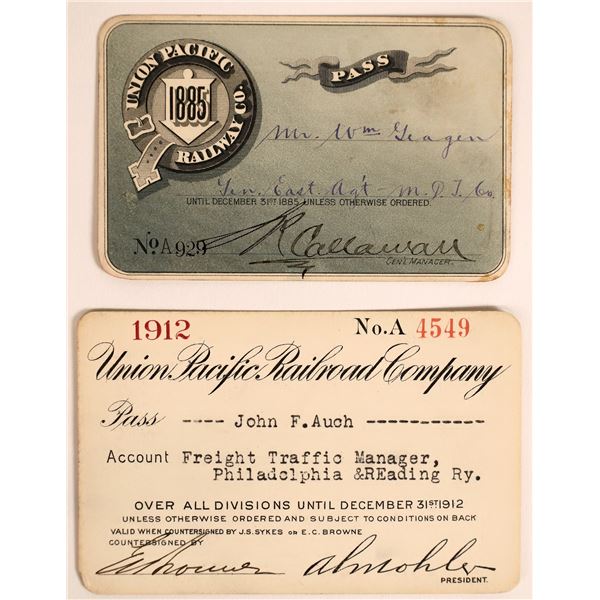 UNION PACIFIC
RAILWAY CO.
1885
PASS
Mr. Wm Geagen
Gen. East. Ag't - M. D. T. Co.
UNTIL DECEMBER 31ST 1885 UNLESS OTHERWISE ORDERED.
No. A929
Callaway
GEN'L MANAGER.
1912
No. A 4549
Union Pacific Railroad Company
Pass ---- John F.Auch -----------
Account Freight Traffic Manager,
Philadclphia &REading Ry.
OVER ALL DIVISIONS UNTIL DECEMBER 31ST 1912
UNLESS OTHERWISE ORDERED AND SUBJECT TO CONDITIONS ON BACK
VALID WHEN COUNTERSIGNED BY J.S. SYKES OR E.C. BROWNE
COUNTERSIGNED BY
A L Mohler
PRESIDENT.